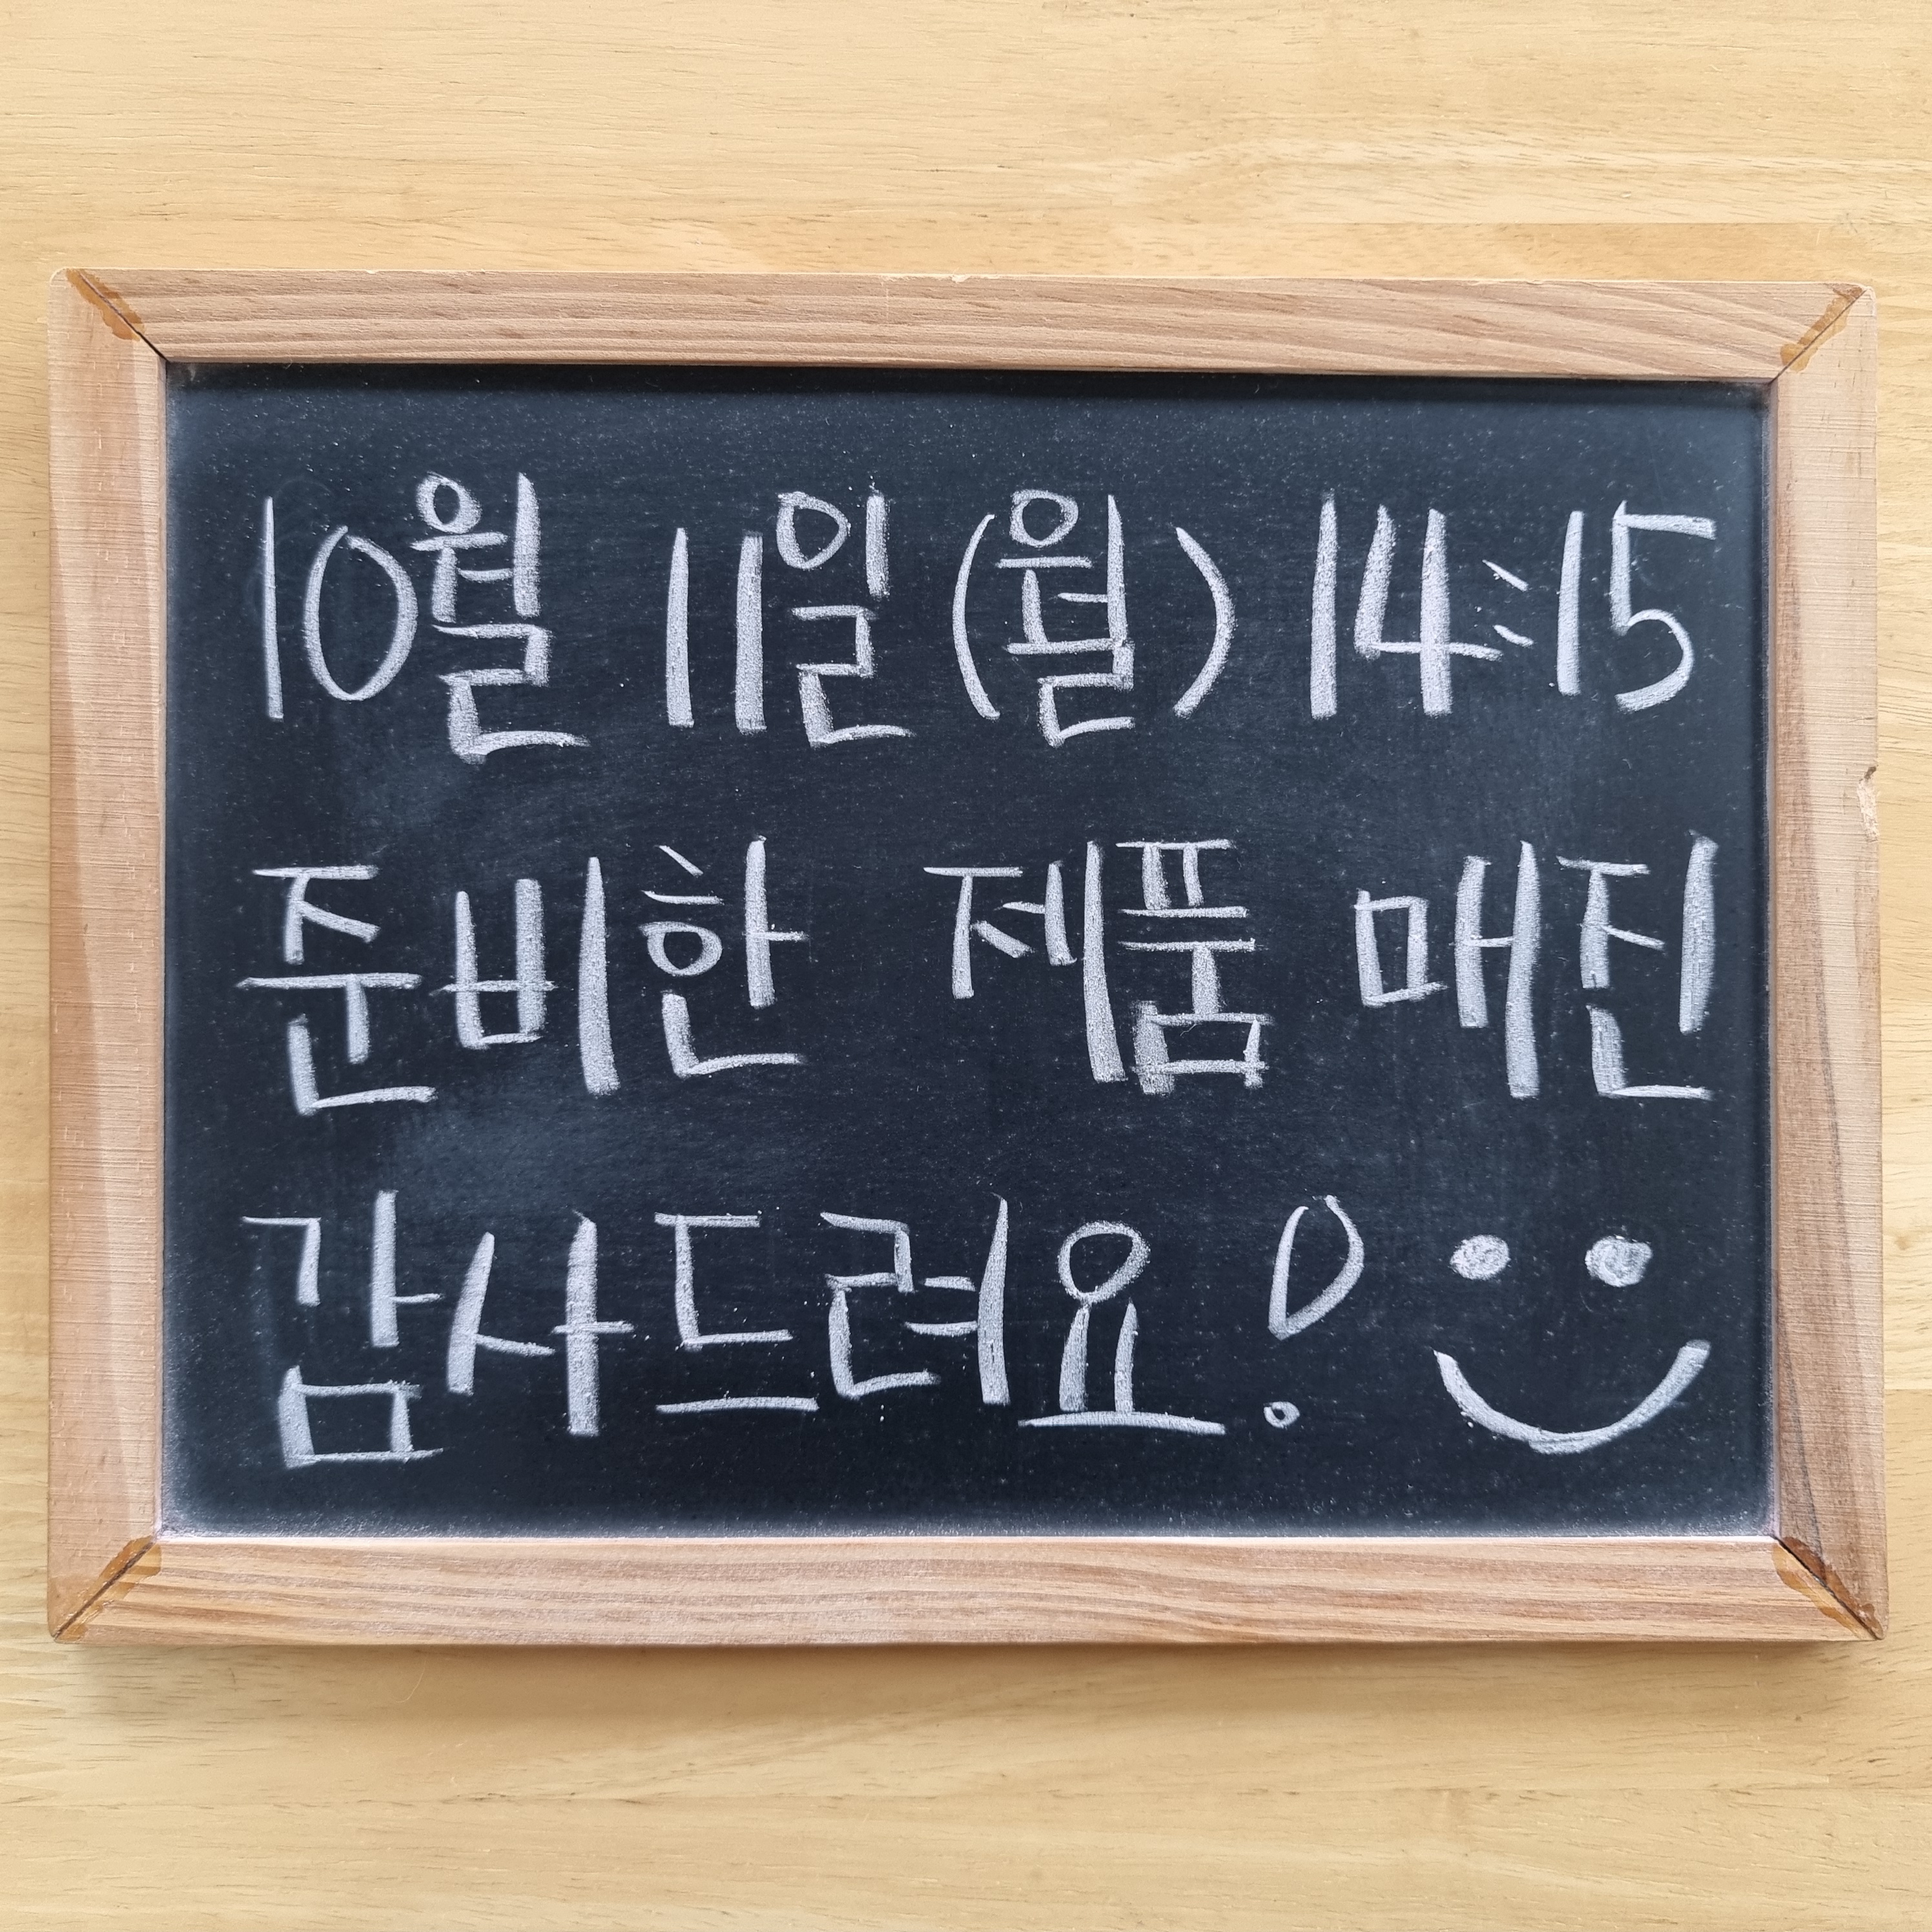 10월 11일(월) 14:15
준비한 제품 매진
감사드려요!